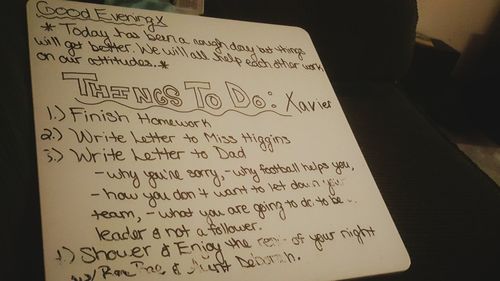 Good Evening X
* Today has been a rough day but things
will get better. We will all help each other work
on our attitudes. *
Things To Do: Xavier
1.) Finish Homework
2.) Write Letter to Miss Higgins
3.) Write Letter to Dad
- why you're sorry, - why football helps you,
- how you don't want to let down your
team, - what you are going to do to be a
leader & not a follower.
4.) Shower & Enjoy the rest of your night
& Aunt Deborah.